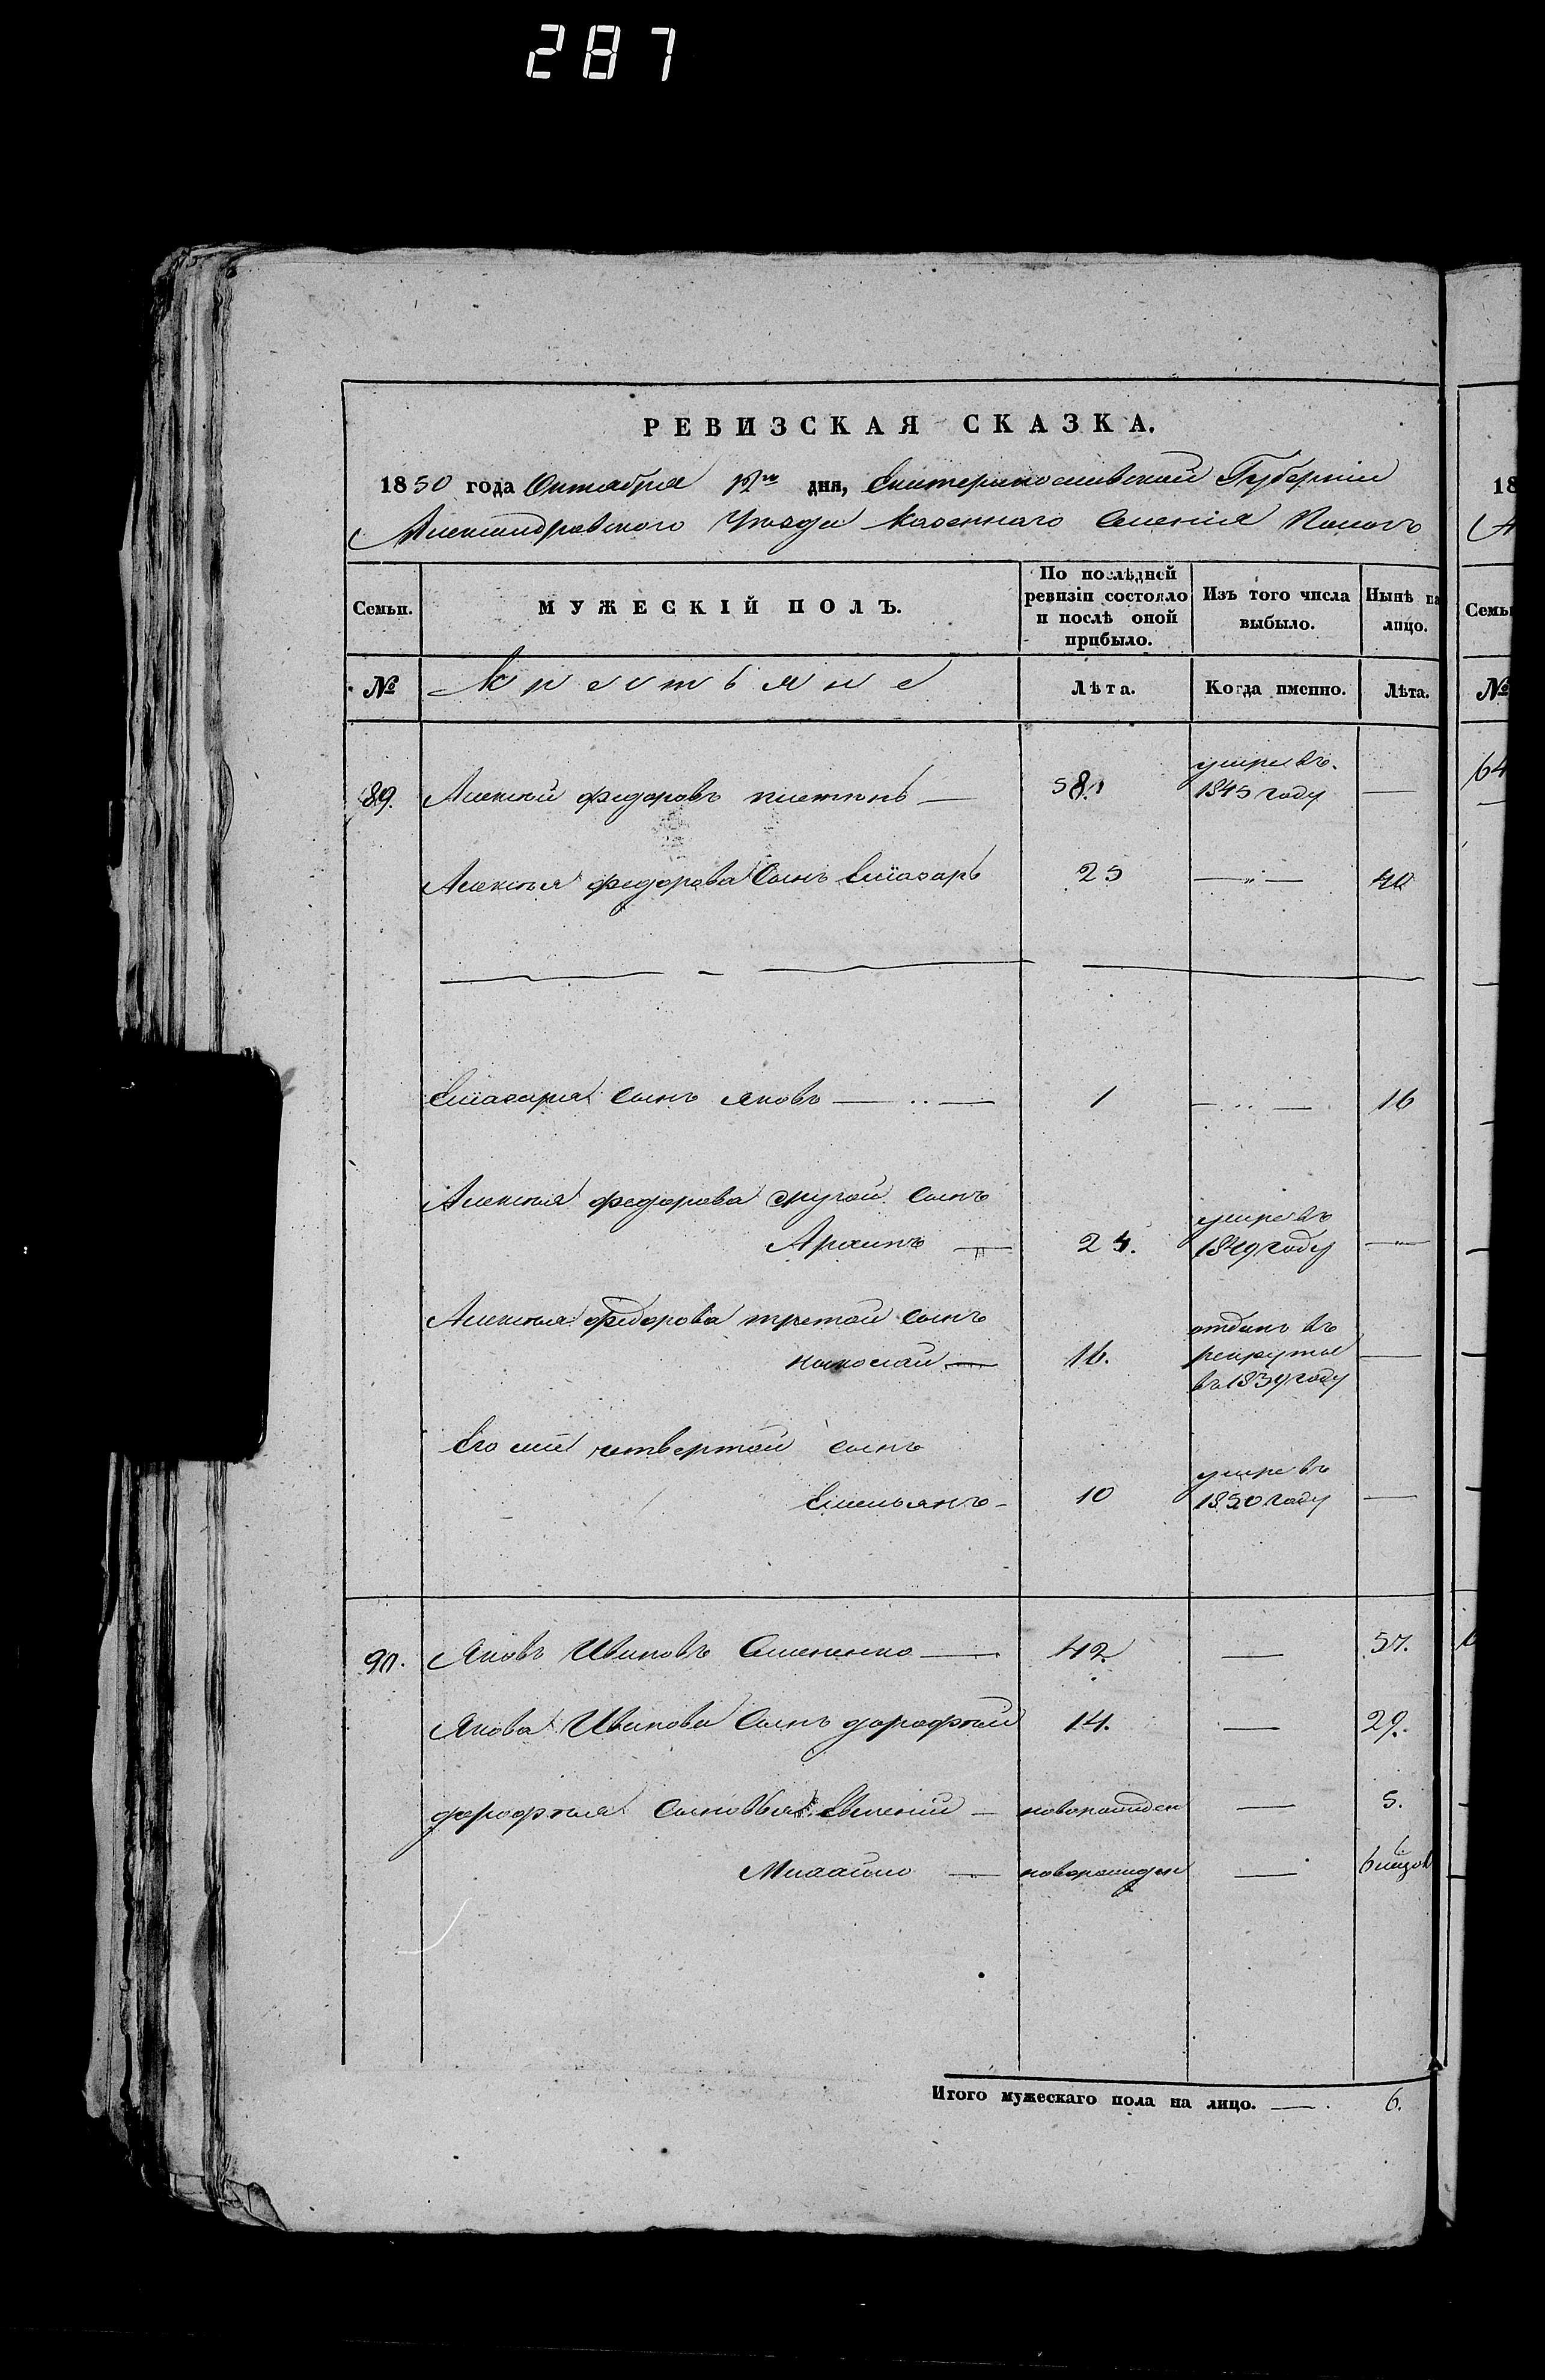 287
РЕВИЗСКАЯ СКАЗКА.
1850 года Октября 12го дня, Екатеринославской Губернии
Александровского Уезда Казенного Селения
Семьи.
МУЖЕСКІЙ ПОЛЪ.
По послѣдней ревизіи состояло и послѣ оной прибыло.
Изъ того числа выбыло.
Нынѣ на лицо.
№
Крестьяне
Лѣта.
Когда именно.
Лѣта.
89. Алексей федоровъ — 58. умре въ. 1845 году —
Алексея федорова Сынъ Елиазаръ 25 — „ — 40
Елиазара Сынъ яковъ — .. — 1 — .. — 16
Алексея федорова другой сынъ
24. умре въ 1849 году —
Алексея федорова третой сынъ
николай — 16. отданъ въ рекруты въ 1839 году —
Его же четвертой сынъ
Емельянъ - 10 умре въ 1850 году —
90. Яковъ Ивановъ — 42 — 57.
Якова Иванова Сынъ дорофей 14. — 29.
дорофея Сыновья: Евгений — новорожден — 5.
Михайло — новорожден — 6
Итого мужескаго пола на лицо. — 6.
18
Семьи
№
64